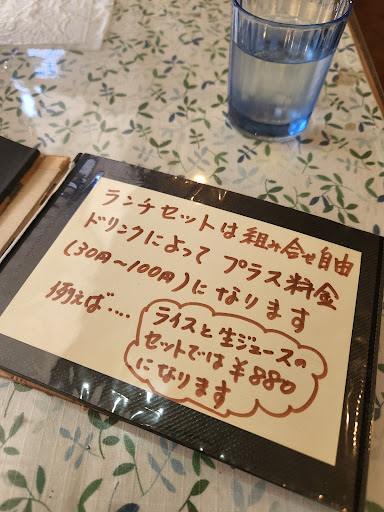 ランチセットは組み合せ自由
ドリンクによって プラス料金
(30円〜100円)になります
例えば....
ライスと生ジュースの
セットでは¥880
になります